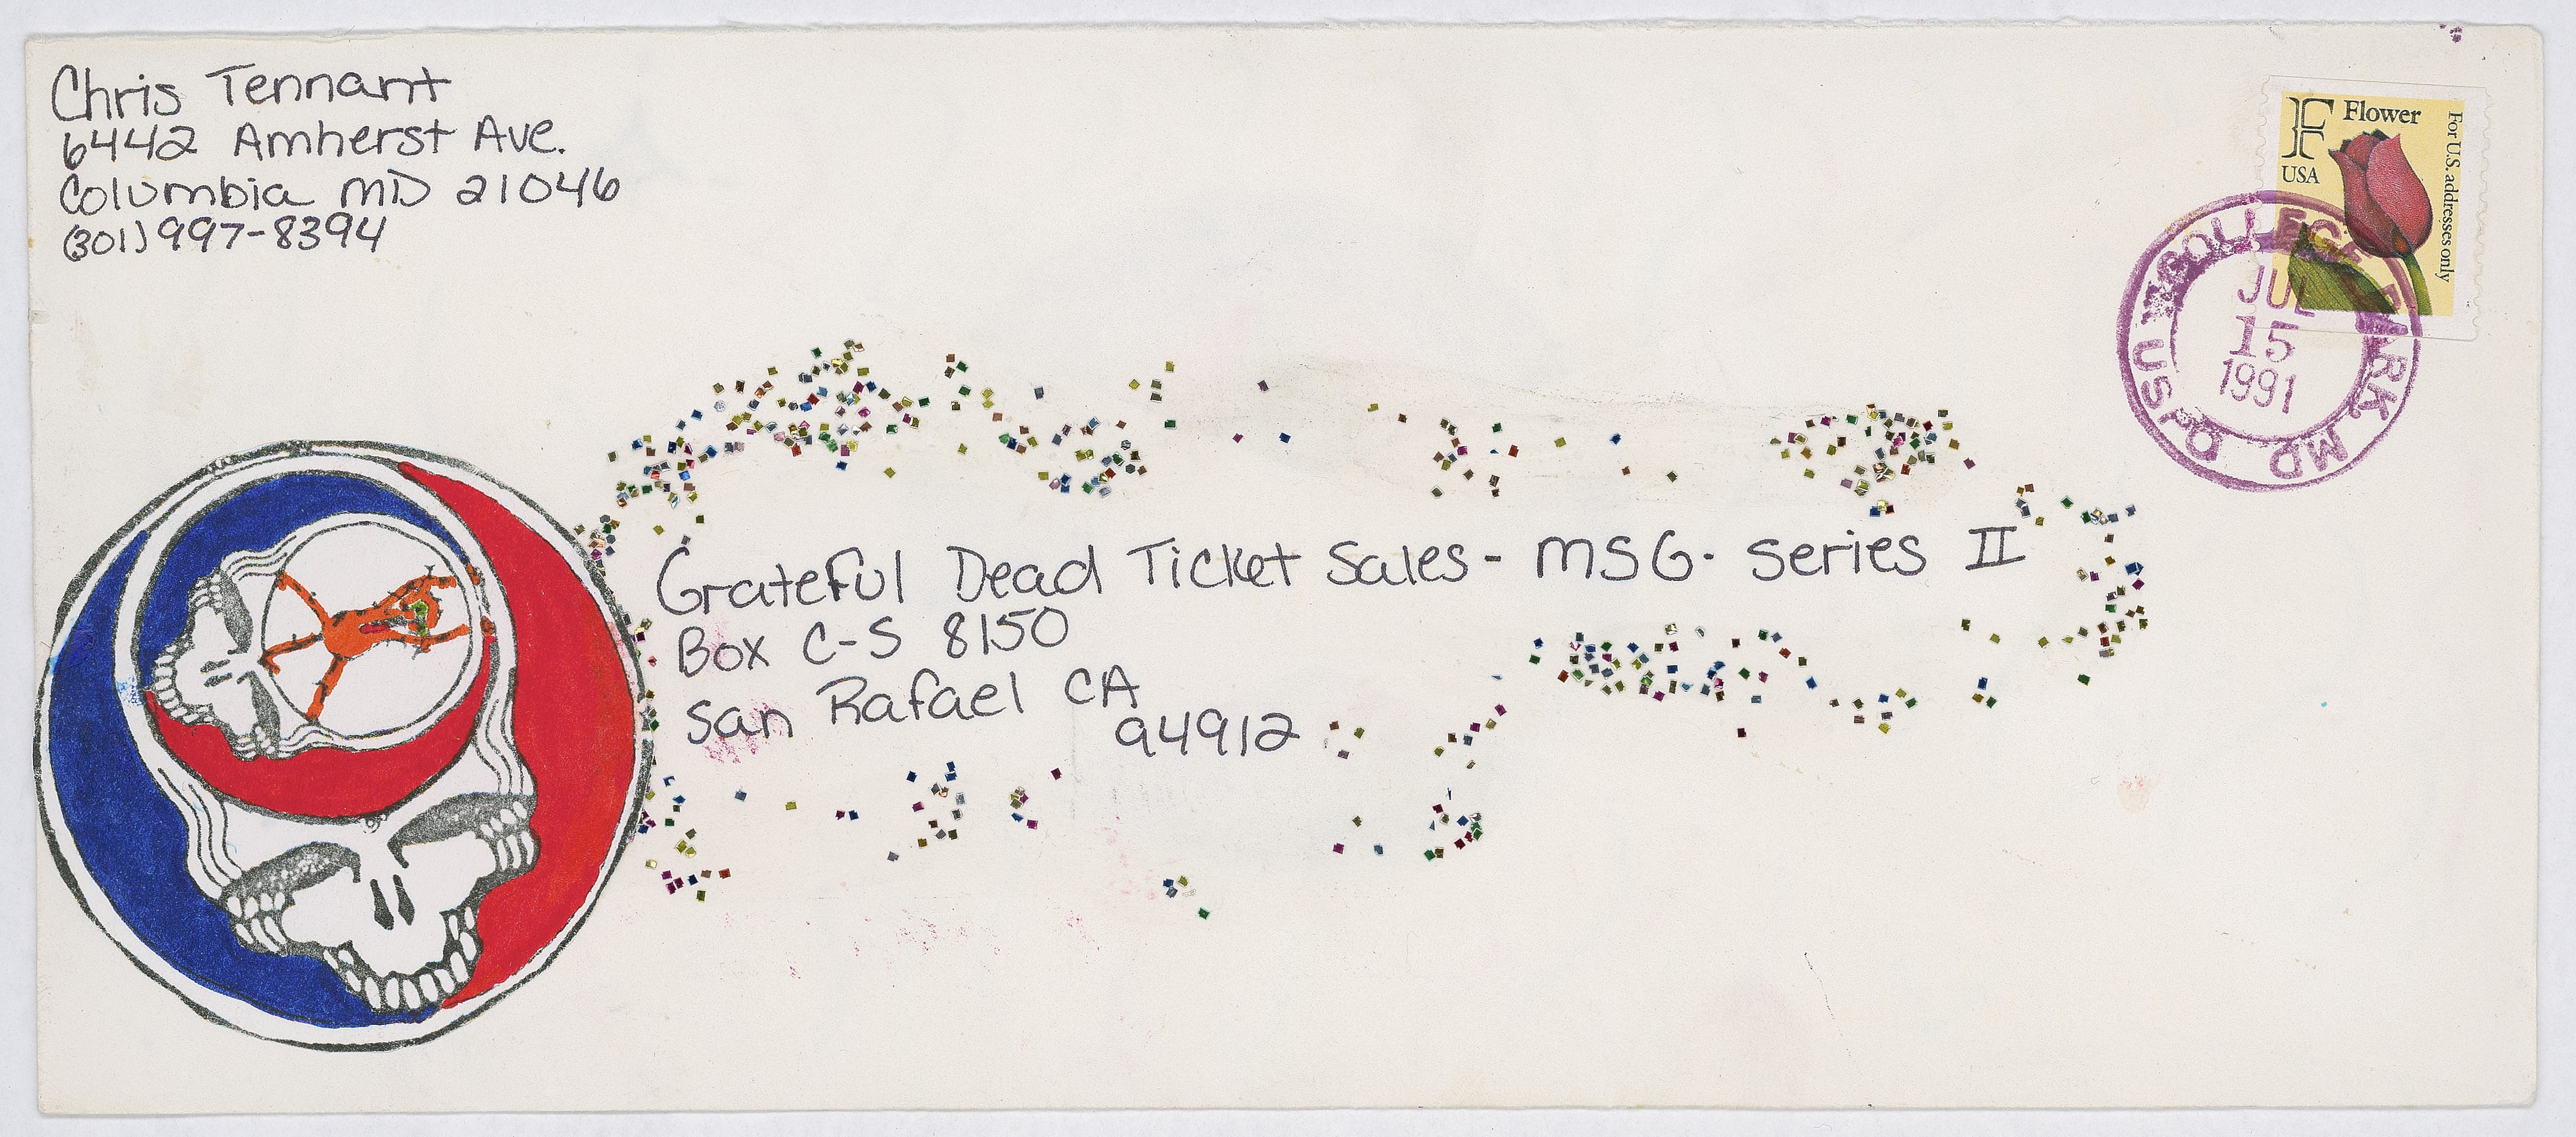 Chris Tennant
6442 Amherst Ave.
Columbia MD 21046
(301) 997-8394
F Flower
USA
For U.S. addresses only
COLLEGE PARK, MD
JUL
15
1991
USPO
Grateful Dead Ticket Sales - MSG. Series II
Box C-S 8150
San Rafael CA
94912